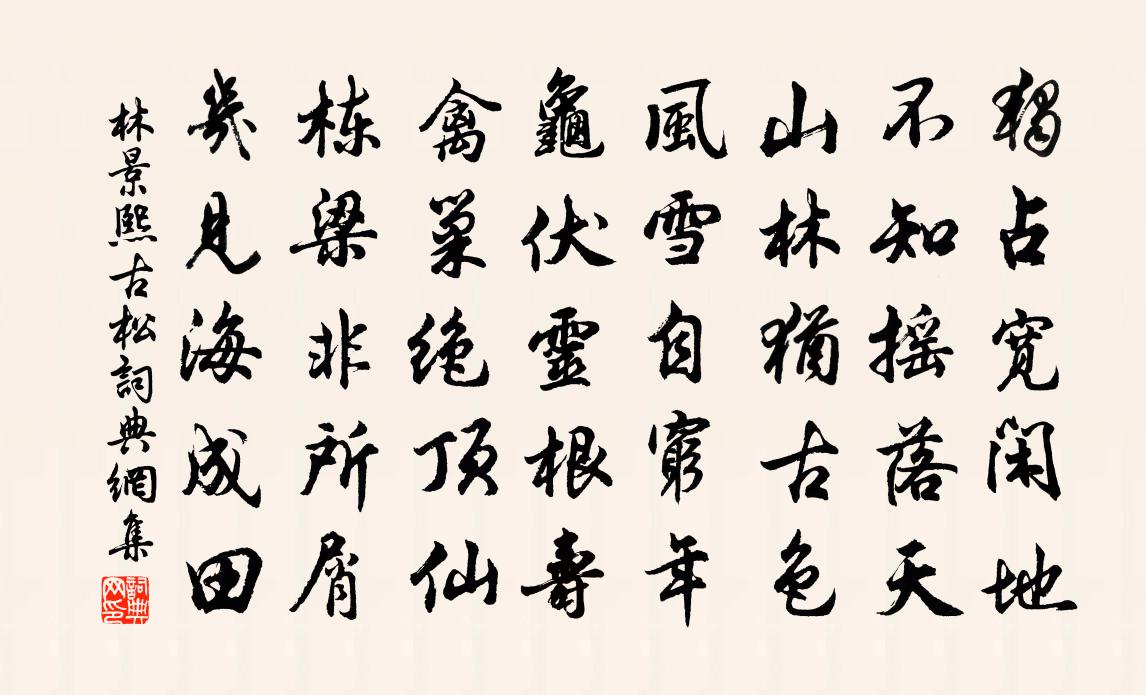 獨占寬閑地
不知搖落天
山林猶古色
風雪自窮年
龜伏靈根壽
禽巢絕頂仙
棟梁非所屑
幾見海成田
林景熙古松詞典網集
詞典網印